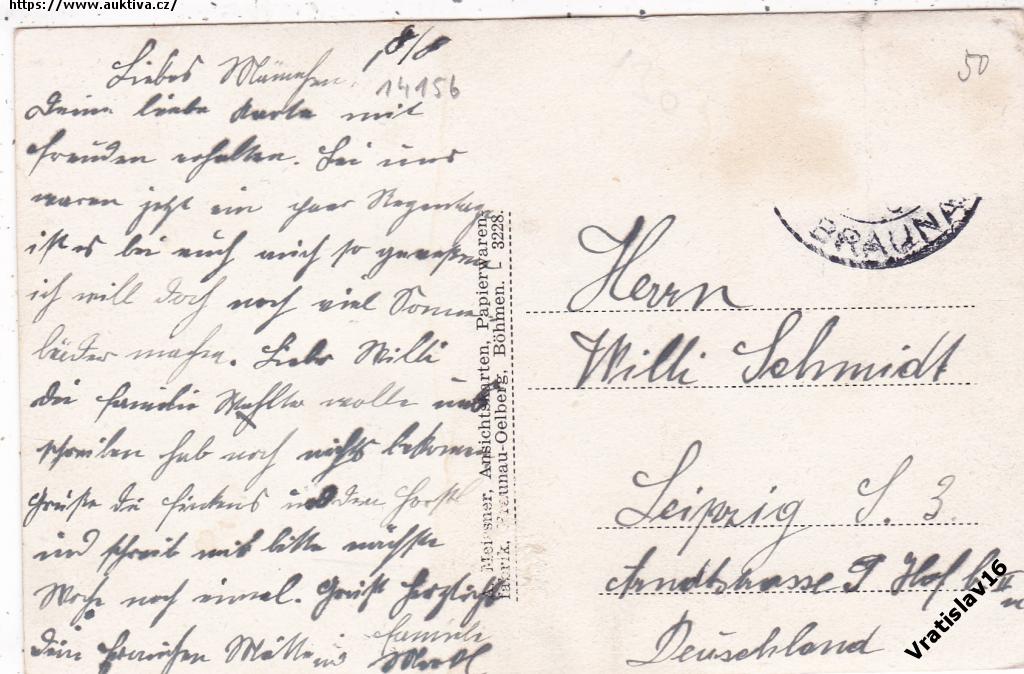 https://www.auktiva.cz/
18/8
Liebes Männchen.
14156
50
Deine liebe Karte mit
Freuden erhalten. Bei uns
waren jetzt ein paar Regentage
ist es bei euch auch so gewesen
ich will doch noch viel Sonnen
bäder machen. Lieber Willi
die Familie wollte uns
schreiben hab noch nichts bekommen
Grüße die und den Horst
und schreib mir bitte nächste
Woche noch einmal. Grüßt herzlichst
dein Mutti und Familie
A. Meissner, Ansichtskarten, Papierwaren,
fabrik, Braunau-Oelberg, Böhmen. — 3228.
BRAUNA
Herrn
Willi Schmidt
Leipzig S. 3.
Arndtstrasse 9 Hof II
Deuschland
Vratislav16